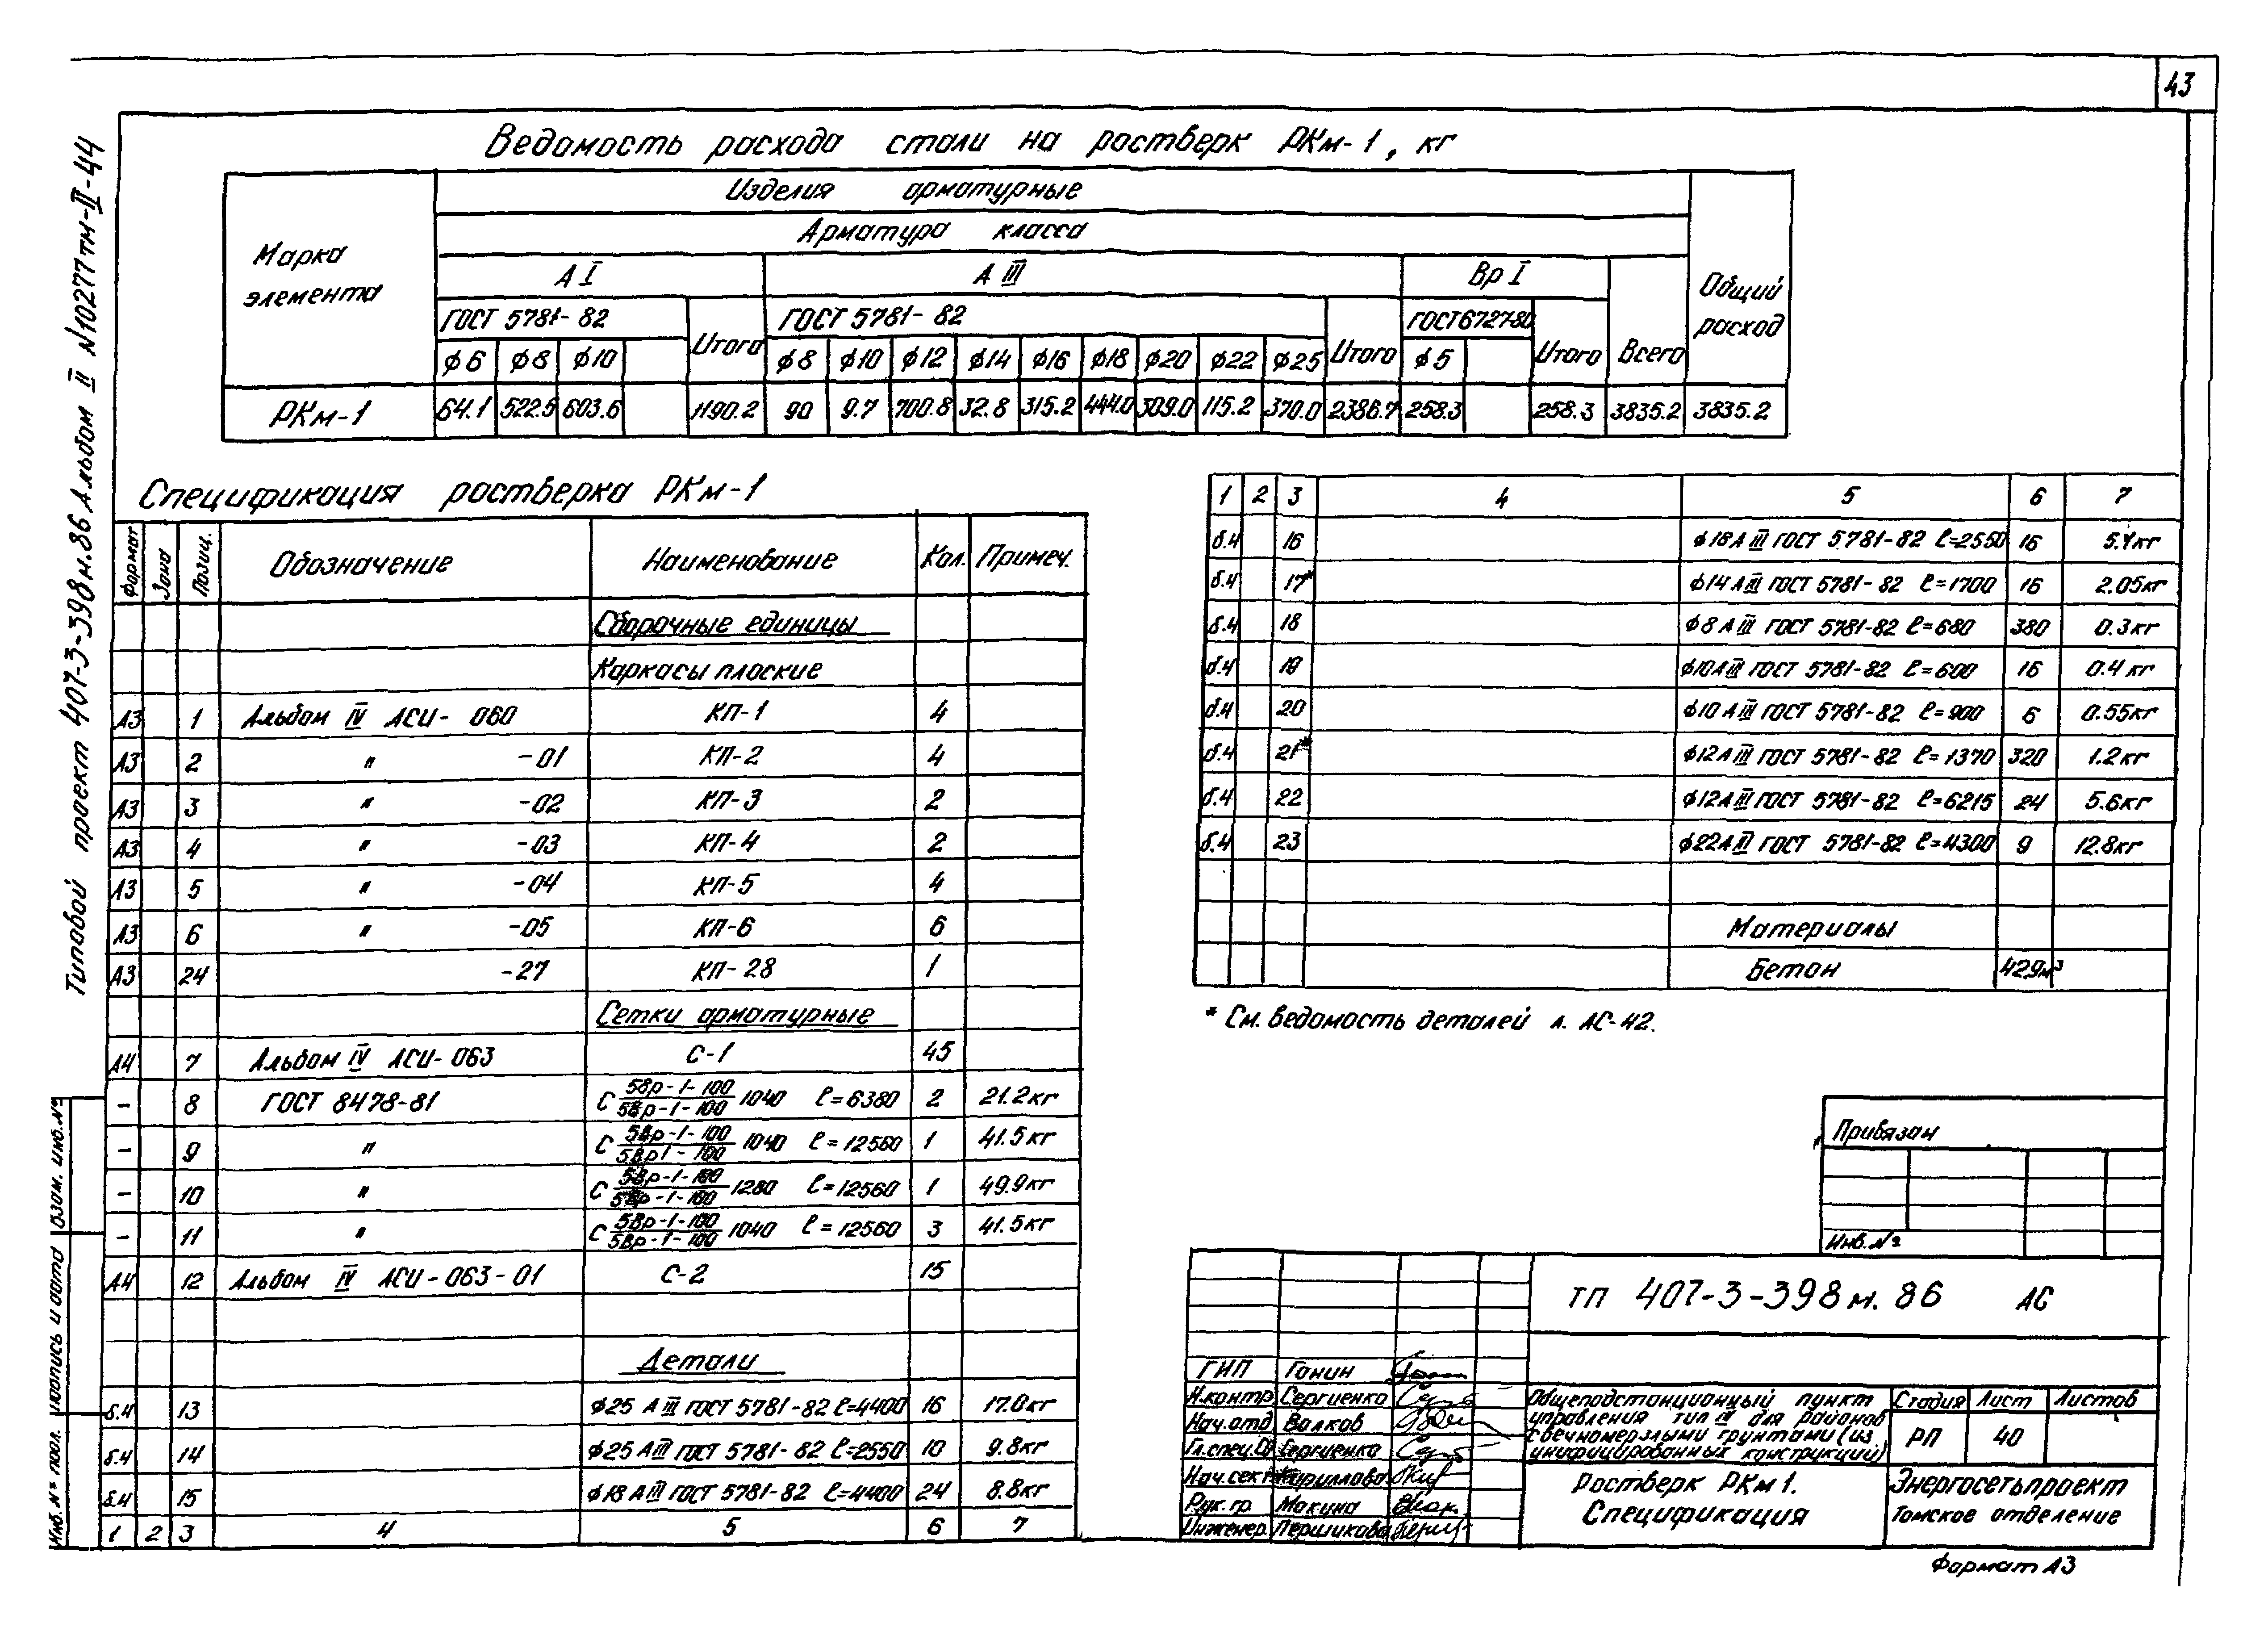 43
Типовой проект 407-3-398м.86 Альбом II N10277тм-II-44
Ведомость расхода стали на ростверк РКм-1, кг
Марка элемента
Изделия арматурные
Арматура класса
А I
А III
Вр I
Всего
Общий расход
ГОСТ 5781-82
Итого
ГОСТ 5781-82
Итого
ГОСТ6727-80
Итого
ф6 ф8 ф10 ф8 ф10 ф12 ф14 ф16 ф18 ф20 ф22 ф25 ф5
РКм-1 64.1 522.5 603.6 1190.2 90 9.7 700.8 32.8 315.2 444.0 309.0 115.2 370.0 2386.7 258.3 258.3 3835.2 3835.2
Спецификация ростверка РКм-1
Формат Зона Позиц. Обозначение Наименование Кол. Примеч.
Сборочные единицы
Каркасы плоские
А3 1 Альбом IV АСИ-060 КП-1 4
А3 2 " -01 КП-2 4
А3 3 " -02 КП-3 2
А3 4 " -03 КП-4 2
А3 5 " -04 КП-5 4
А3 6 " -05 КП-6 6
А3 24 -27 КП-28 1
Сетки арматурные
А4 7 Альбом IV АСИ-063 С-1 45
- 8 ГОСТ 8478-81 С 5Вр-1-100/5Вр-1-100 1040 ℓ=6380 2 21.2кг
- 9 " С 5Вр-1-100/5Вр1-100 1040 ℓ=12560 1 41.5кг
- 10 " С 5Вр-1-100/5Вр-1-100 1280 ℓ=12560 1 49.9кг
- 11 " С 5Вр-1-100/5Вр-1-100 1040 ℓ=12560 3 41.5кг
А4 12 Альбом IV АСИ-063-01 С-2 15
Детали
б.ч 13 ф25 А III ГОСТ 5781-82 ℓ=4400 16 17.0кг
б.ч 14 ф25 А III ГОСТ 5781-82 ℓ=2550 10 9.8кг
б.ч 15 ф18 А III ГОСТ 5781-82 ℓ=4400 24 8.8кг
1 2 3 4 5 6 7
1 2 3 4 5 6 7
б.ч 16 ф18А III ГОСТ 5781-82 ℓ=2550 16 5.4кг
б.ч 17* ф14 А III ГОСТ 5781-82 ℓ=1700 16 2.05кг
б.ч 18 ф8 А III ГОСТ 5781-82 ℓ=680 380 0.3кг
б.ч 19 ф10А III ГОСТ 5781-82 ℓ=600 16 0.4кг
б.ч 20 ф10 А III ГОСТ 5781-82 ℓ=900 6 0.55кг
б.ч 21* ф12А III ГОСТ 5781-82 ℓ=1370 320 1.2кг
б.ч 22 ф12А III ГОСТ 5781-82 ℓ=6215 24 5.6кг
б.ч 23 ф22А III ГОСТ 5781-82 ℓ=4300 9 12.8кг
Материалы
Бетон 42.9м³
* См. ведомость деталей л. АС-42.
Привязан
Инв.№
ТП 407-3-398м.86 АС
ГИП Ганин
Н.контр Сергиенко
Нач.отд Волков
Гл.спец.
Сергиенко
Нач.сект Кириллова
Рук.гр Макина
Инженер Першикова
Общеподстанционный пункт
управления тип IV для районов
с вечномерзлыми грунтами (из
унифицированных конструкций)
Стадия Лист Листов
РП 40
Ростверк РКм1.
Спецификация
Энергосетьпроект
Томское отделение
Формат А3
Инв.№ подл. Подпись и дата Взам. инв.№